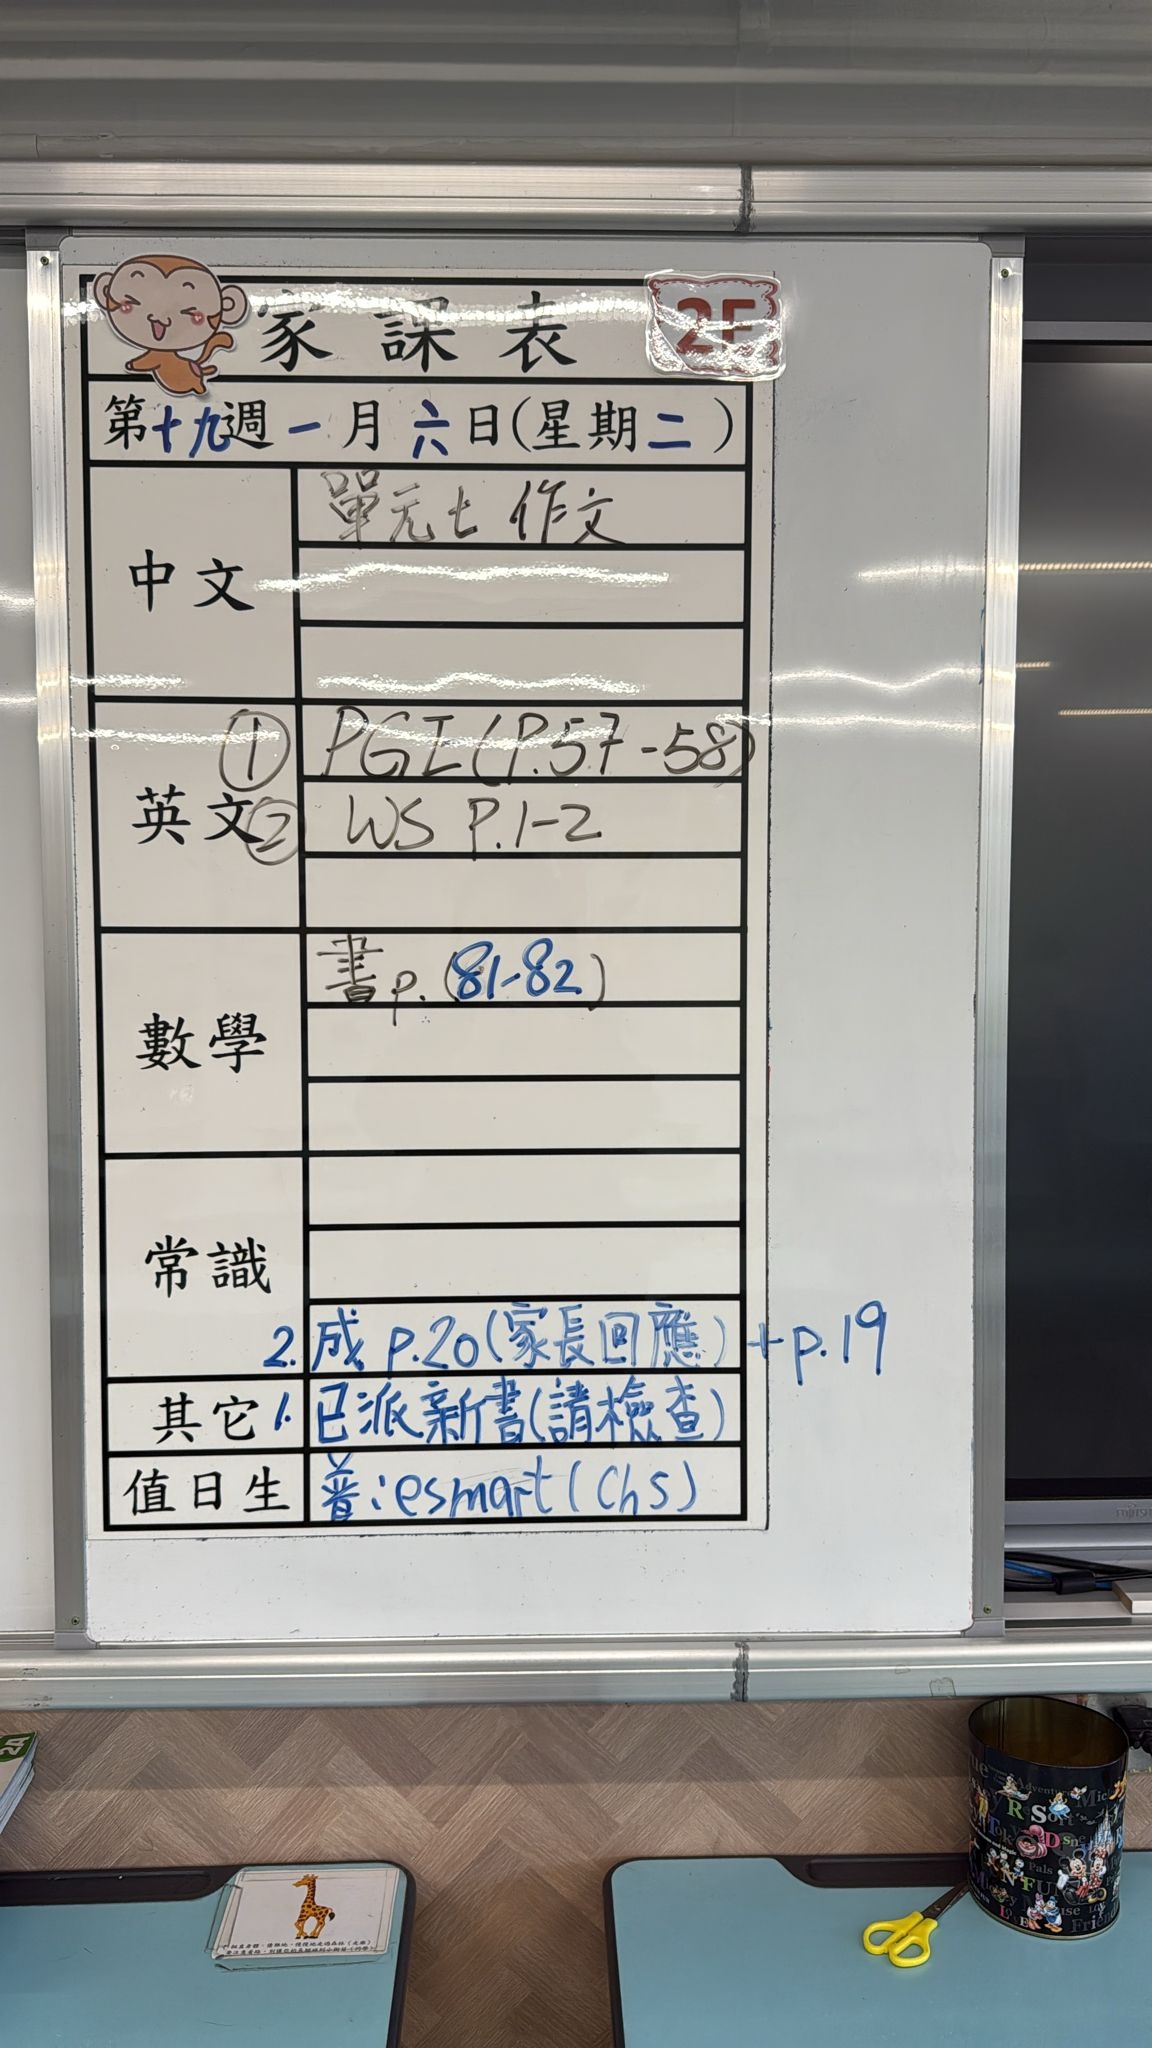 家課表 2F
第十九週一月六日(星期二)
中文
單元七 作文
英文
① PGI (P.57-58)
② WS P.1-2
數學
書p.(81-82)
常識
2. 成 p.20(家長回應) + p.19
其它 1. 已派新書(請檢查)
值日生 普：esmart(Ch5)
2A